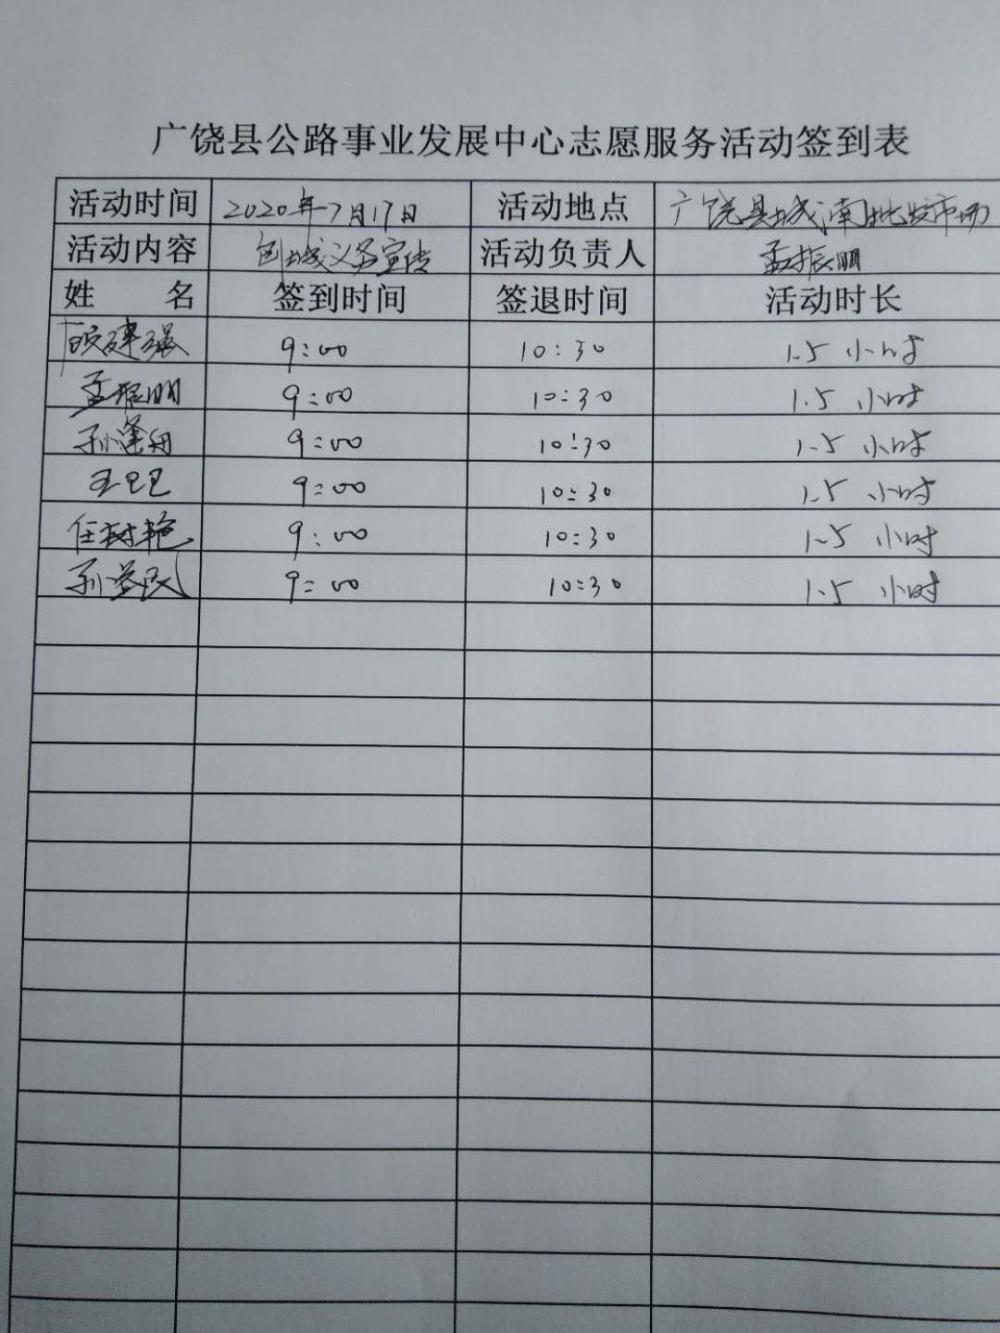 广饶县公路事业发展中心志愿服务活动签到表
活动时间 2020年7月17日 活动地点 广饶县城南批发市场
活动内容 创城义务宣传 活动负责人 孟振明
姓 名 签到时间 签退时间 活动时长
建强 9:00 10:30 1.5 小时
孟振明 9:00 10:30 1.5 小时
孙 9:00 10:30 1.5 小时
王 9:00 10:30 1.5 小时
任树艳 9:00 10:30 1.5 小时
孙 民 9:00 10:30 1.5 小时